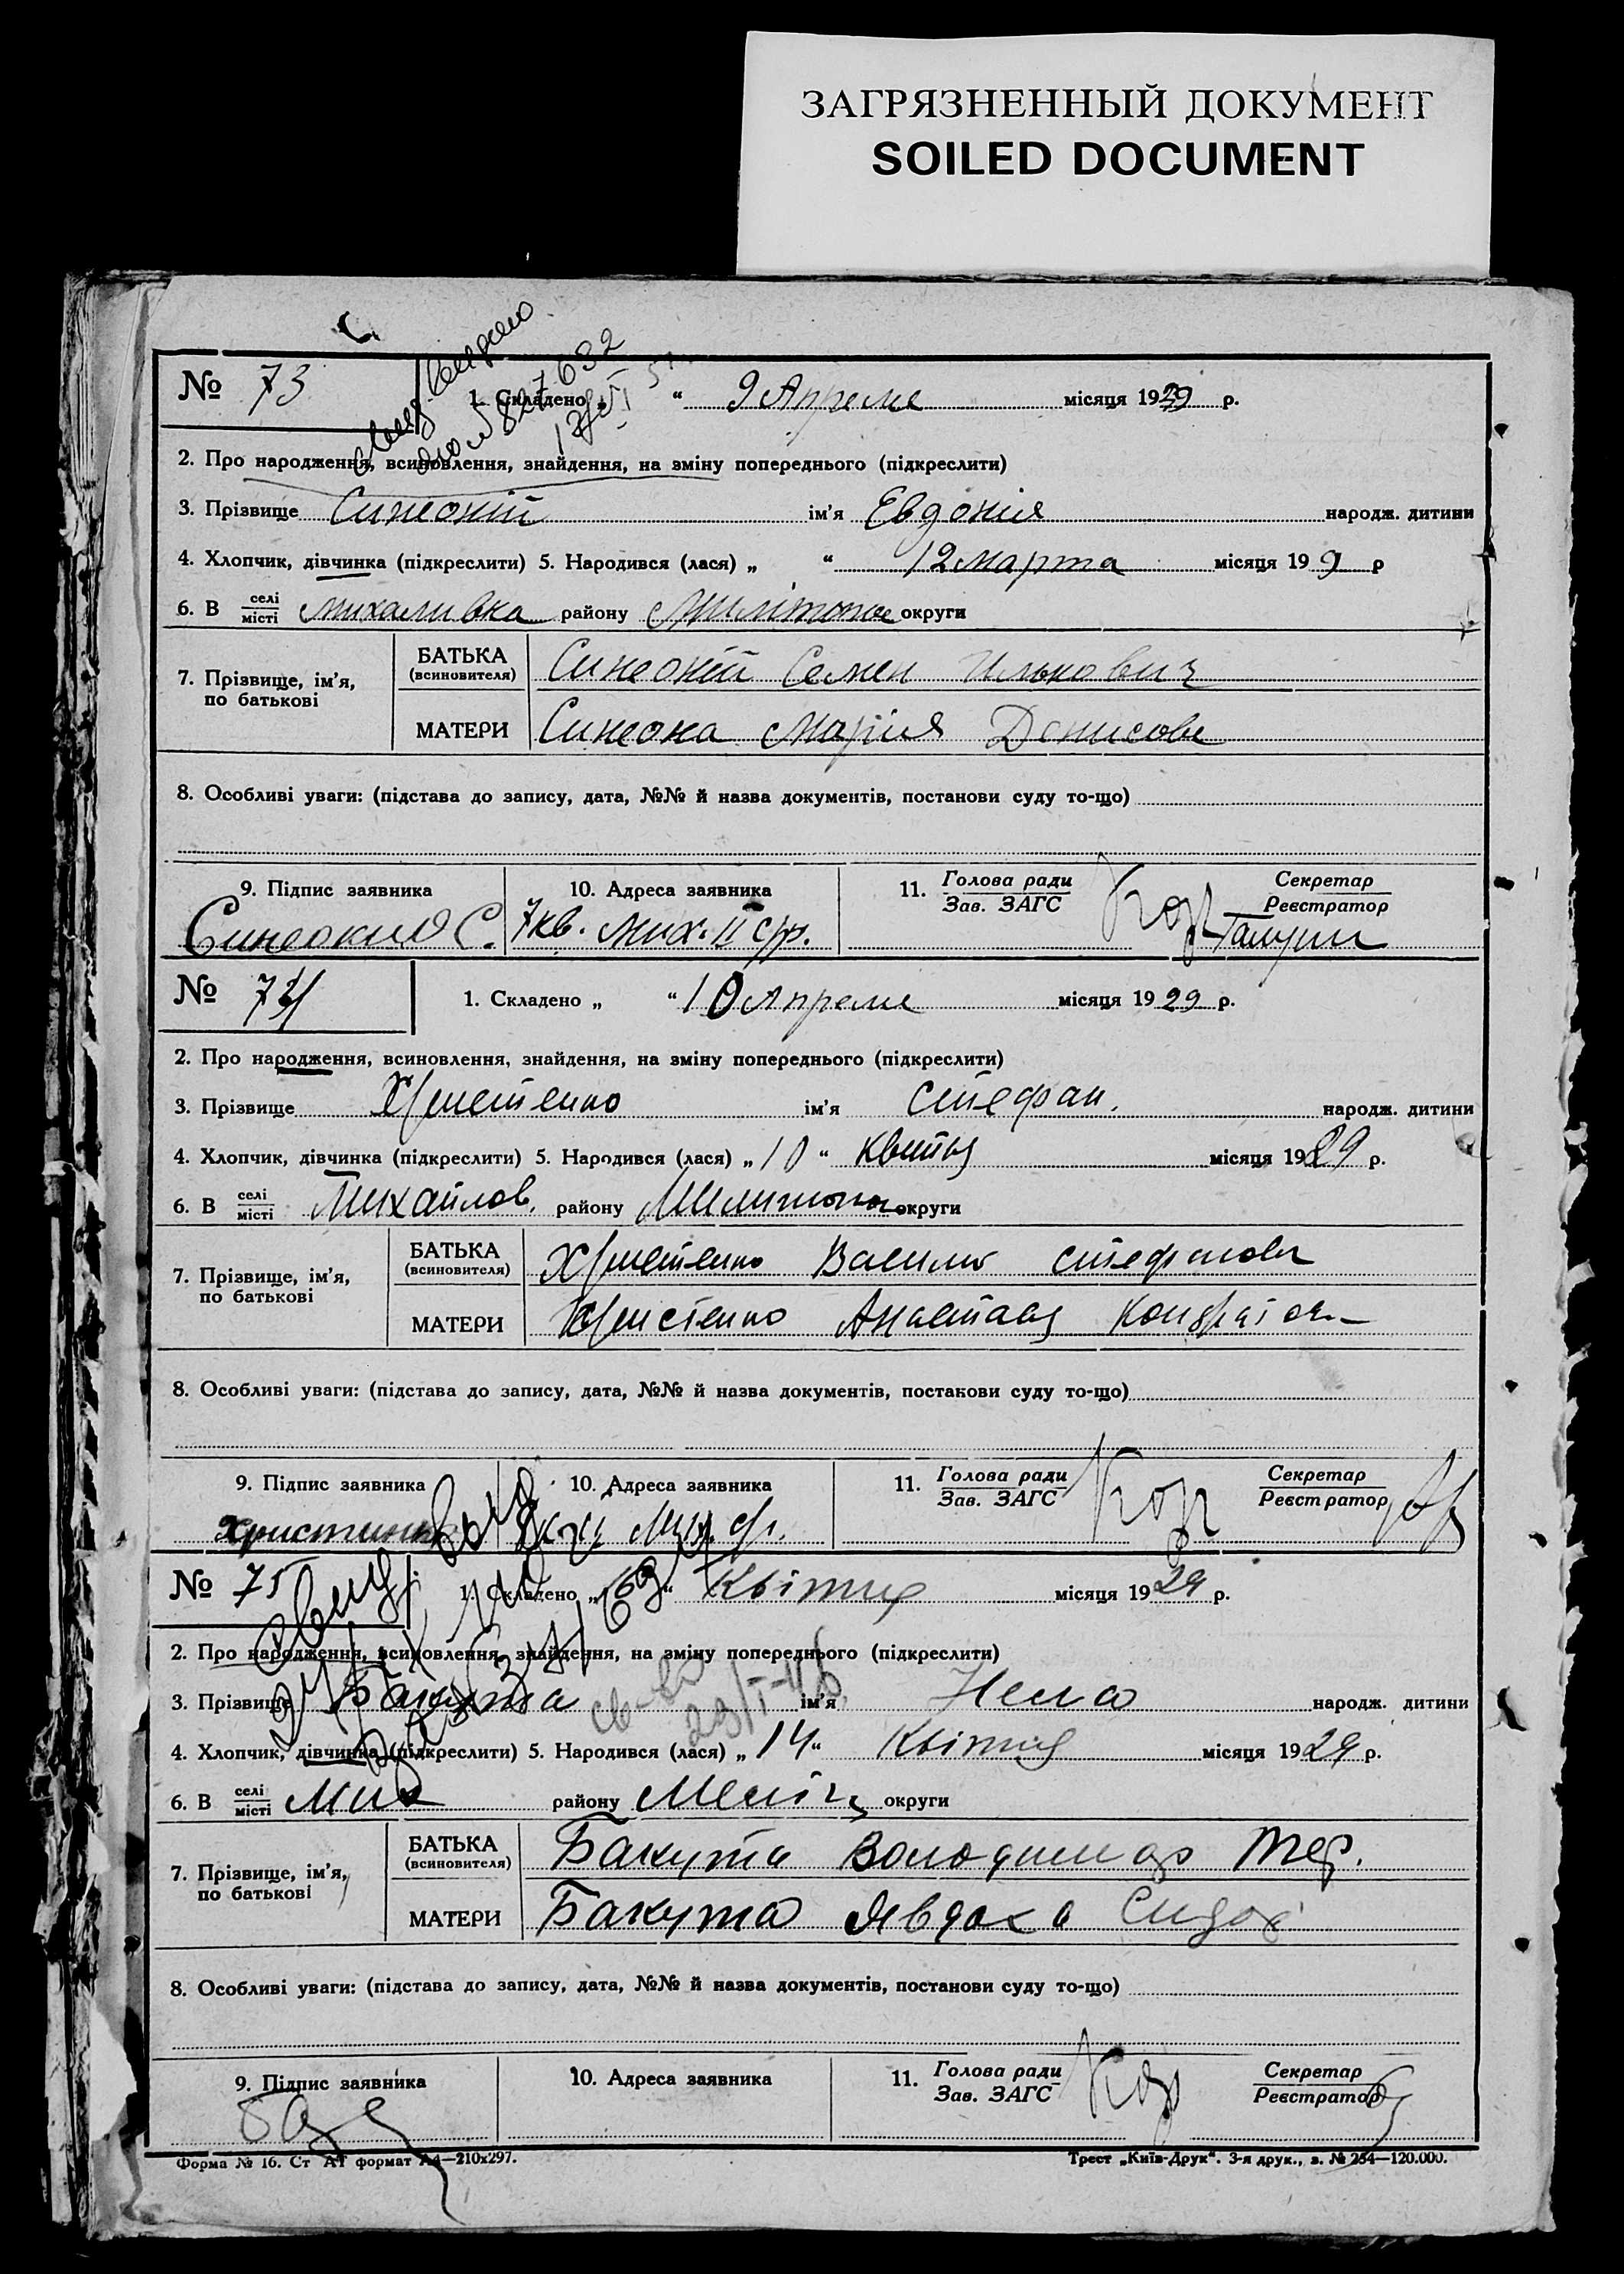 ЗАГРЯЗНЕННЫЙ ДОКУМЕНТ
SOILED DOCUMENT
№ 73
1. Складено „ “ 9 Апреля місяця 1929 р.
2. Про народження, всиновлення, знайдення, на зміну попереднього (підкреслити)
3. Прізвище Синеокій ім'я Евдокия народж. дитини
4. Хлопчик, дівчинка (підкреслити) 5. Народився (лася) „ “ 12 марта місяця 19 9 р
6. В селі місті Михаливка району округи
7. Прізвище, ім'я, по батькові
БАТЬКА (всиновителя) Синеокій Семен Илькович
МАТЕРИ Синеока Мария Денисове
8. Особливі уваги: (підстава до запису, дата, №№ й назва документів, постанови суду то-що)
9. Підпис заявника 10. Адреса заявника 11. Голова ради Зав. ЗАГС Секретар Реєстратор
Синеокий С. 7 кв. Мих. II с/р.
№ 74
1. Складено „ “ 10 Апреля місяця 1929 р.
2. Про народження, всиновлення, знайдення, на зміну попереднього (підкреслити)
3. Прізвище Христенко ім'я Стефан. народж. дитини
4. Хлопчик, дівчинка (підкреслити) 5. Народився (лася) „ 10 “ Квітня місяця 1929 р.
6. В селі місті Михайлов. району округи
7. Прізвище, ім'я, по батькові
БАТЬКА (всиновителя) Христенко Василь Стефанович
МАТЕРИ Христенко Анастасія
8. Особливі уваги: (підстава до запису, дата, №№ й назва документів, постанови суду то-що)
9. Підпис заявника 10. Адреса заявника 11. Голова ради Зав. ЗАГС Секретар Реєстратор
№ 75
1. Складено „ “ Квітня місяця 1929 р.
2. Про народження, всиновлення, знайдення, на зміну попереднього (підкреслити)
3. Прізвище Бакута ім'я народж. дитини
4. Хлопчик, дівчинка (підкреслити) 5. Народився (лася) „ 14 “ Квітня місяця 1929 р.
6. В селі місті Мих району округи
7. Прізвище, ім'я, по батькові
БАТЬКА (всиновителя) Бакута Володимир
МАТЕРИ Бакута Явдоха Сидор
8. Особливі уваги: (підстава до запису, дата, №№ й назва документів, постанови суду то-що)
9. Підпис заявника 10. Адреса заявника 11. Голова ради Зав. ЗАГС Секретар Реєстратор
Форма № 16. Ст А1 формат А4—210х297. Трест „Київ-Друк“. 3-я друк., з. № 254—120.000.